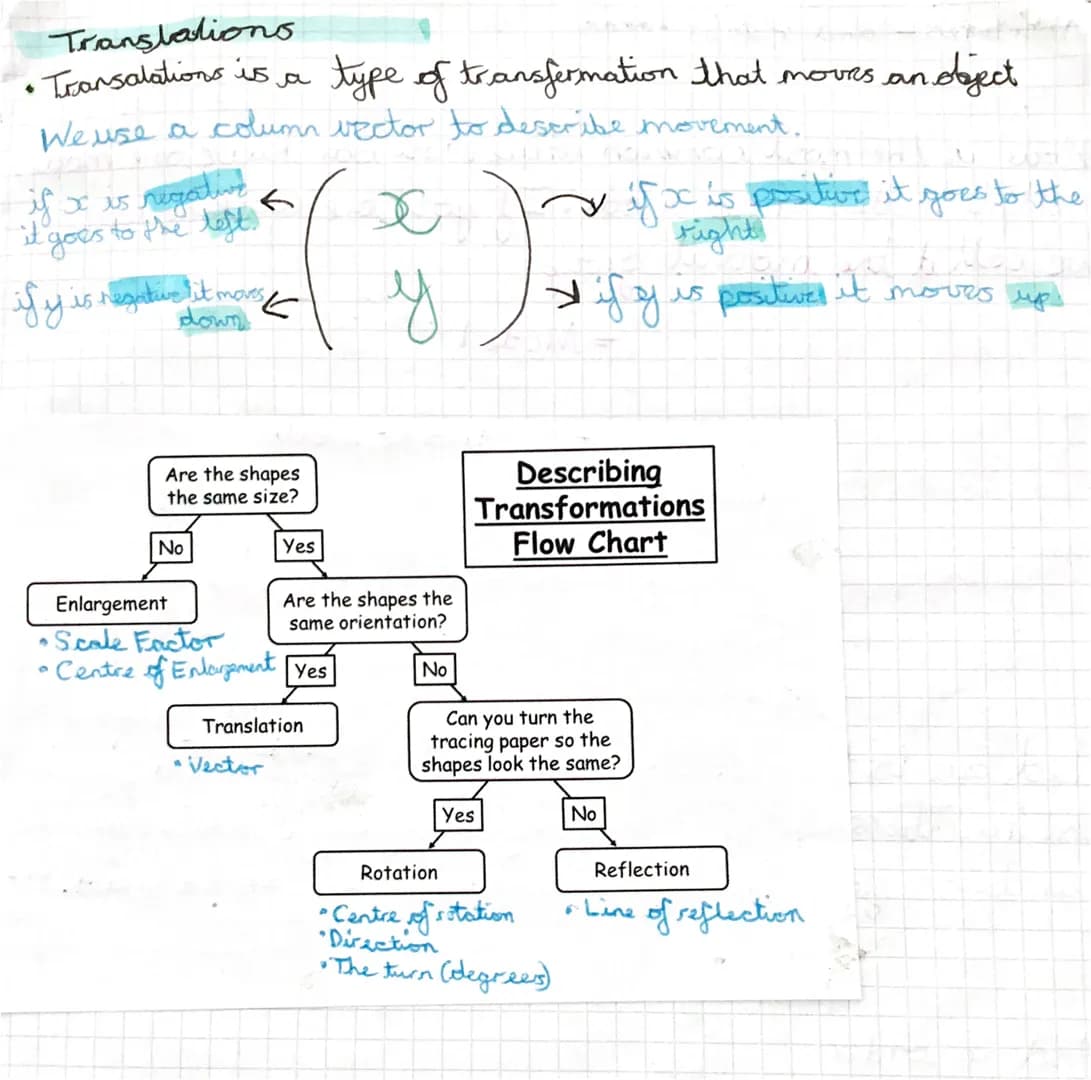 Translations
• Transalations is a type of transfermation that moves an object
We use a column vector to describe movement.
if x is negative
it goes to the left.
x
if x is positive it goes to the
right
if y is negative it moves
down
y
if y is positive it moves up.
Describing
Transformations
Flow Chart
Are the shapes
the same size?
No
Yes
Enlargement
• Scale Factor
• Centre of Enlargement
Are the shapes the
same orientation?
Yes
No
Translation
• Vector
Can you turn the
tracing paper so the
shapes look the same?
Yes
No
Rotation
• Centre of rotation
• Direction
• The turn (degrees)
Reflection
• Line of reflection